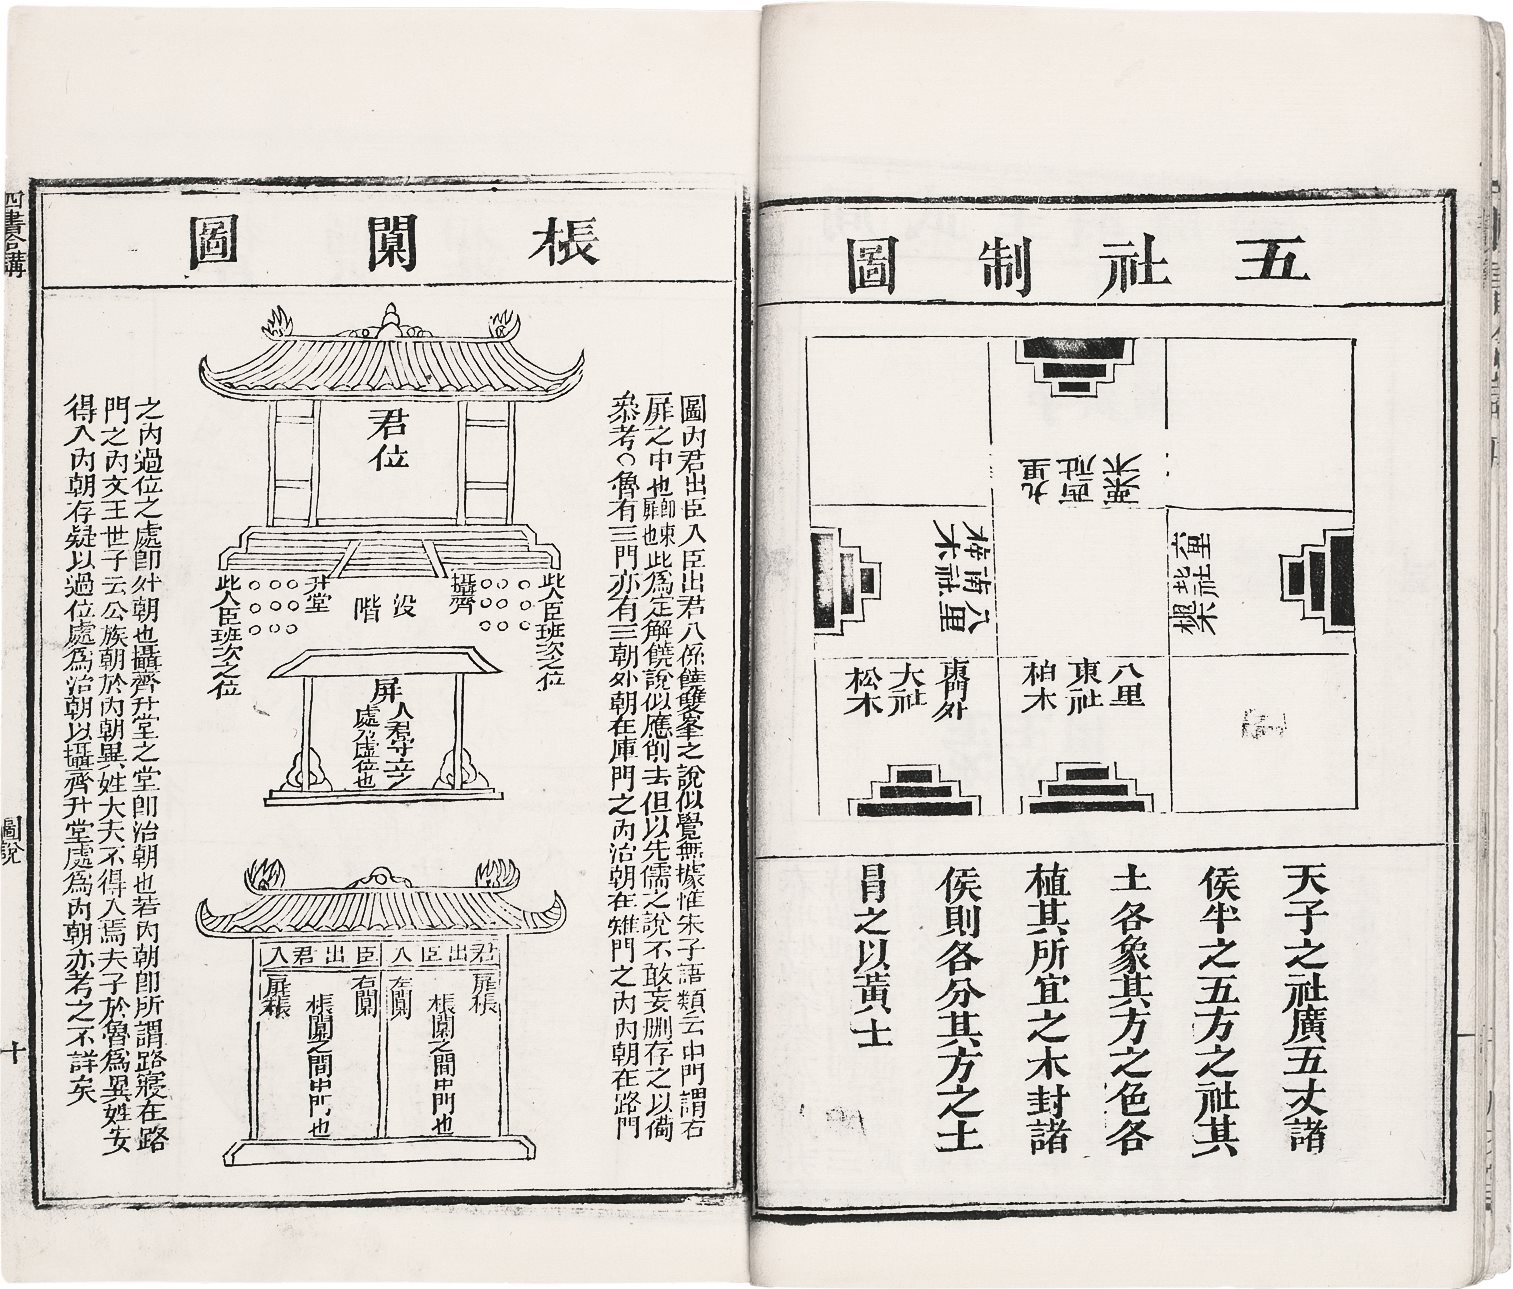 五社制圖
九里
西社
栗木
梓木
南社
八里
六里
北社
槐木
八里
東社
柏木
東門外
大社
松木
天子之社廣五丈諸
侯半之五方之社其
土各象其方之色各
植其所宜之木封諸
侯則各分其方之土
冐之以黃土
棖闑圖
圖內君出臣入臣出君入係饒雙峯之說似覺無據惟朱子語類云中門謂右
扉之中也卽東扉也此爲定解饒說似應削去但以先儒之說不敢妄刪存之以備
叅考○魯有三門亦有三朝外朝在庫門之內治朝在雉門之內內朝在路門
君位
此人臣班次之位
攝齊
沒階
升堂
此人臣班次之位
屏
人君宁立之
處乃虛位也
君出臣入
臣出君入
扉棖
棖闑之間中門也
左闑
右闑
棖闑之間中門也
扉棖
之內過位之處卽外朝也攝齊升堂之堂卽治朝也若內朝卽所謂路寢在路
門之內文王世子云公族朝於內朝異姓大夫不得入焉夫子於魯爲異姓安
得入內朝存疑以過位處爲治朝以攝齊升堂處爲內朝亦考之不詳矣
四書合講
圖說
十